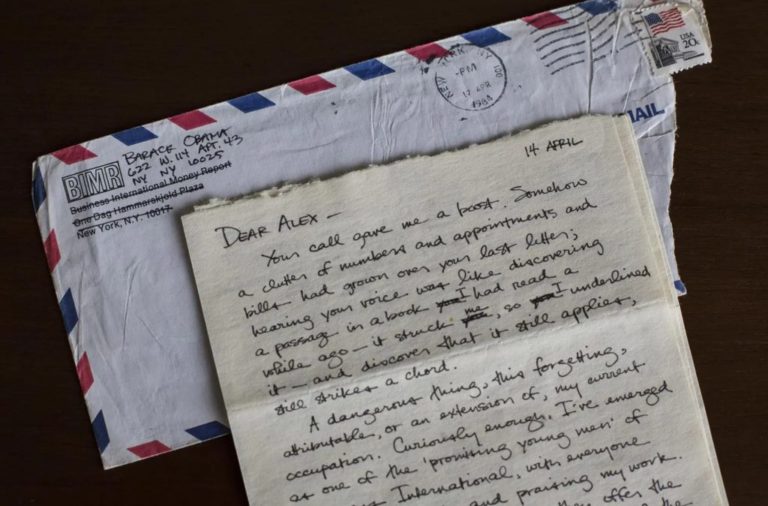 BARACK OBAMA
622 W. 114 APT. 43
NY NY 10025
BIMR
Business International Money Report
One Dag Hammarskjold Plaza
New York, N.Y. 10017
NEW YORK, NY 100
-PM
17 APR
1984
USA
20c
MAIL
14 APRIL
DEAR ALEX —
Your call gave me a boost. Somehow
a clutter of numbers and appointments and
bills had grown over your last letter;
hearing your voice was like discovering
a passage in a book you I had read a
while ago — it struck me, so you I underlined
it — and discover that it still applies,
still strikes a chord.
A dangerous thing, this forgetting,
attributable, or an extension of, my current
occupation. Curiously enough, I've emerged
as one of the 'promising young men' of
International, with everyone
and praising my work.
they offer the
the